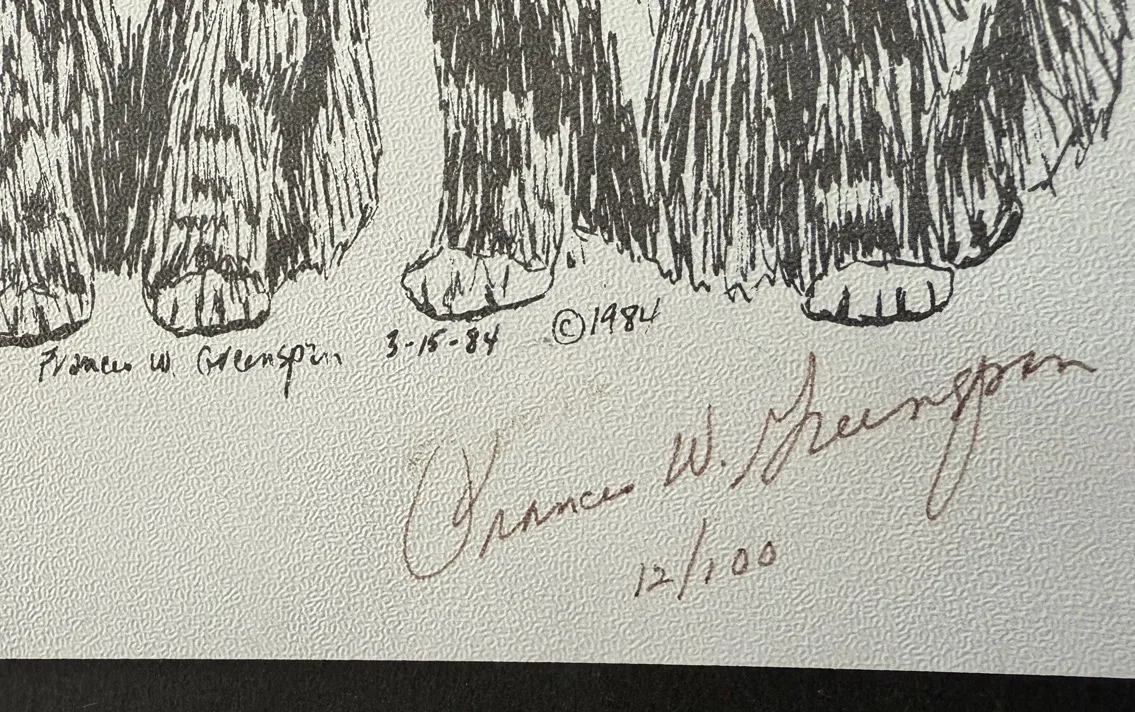 Frances W. Greenspan 3-15-84 ©1984
Frances W. Greenspan
12/100